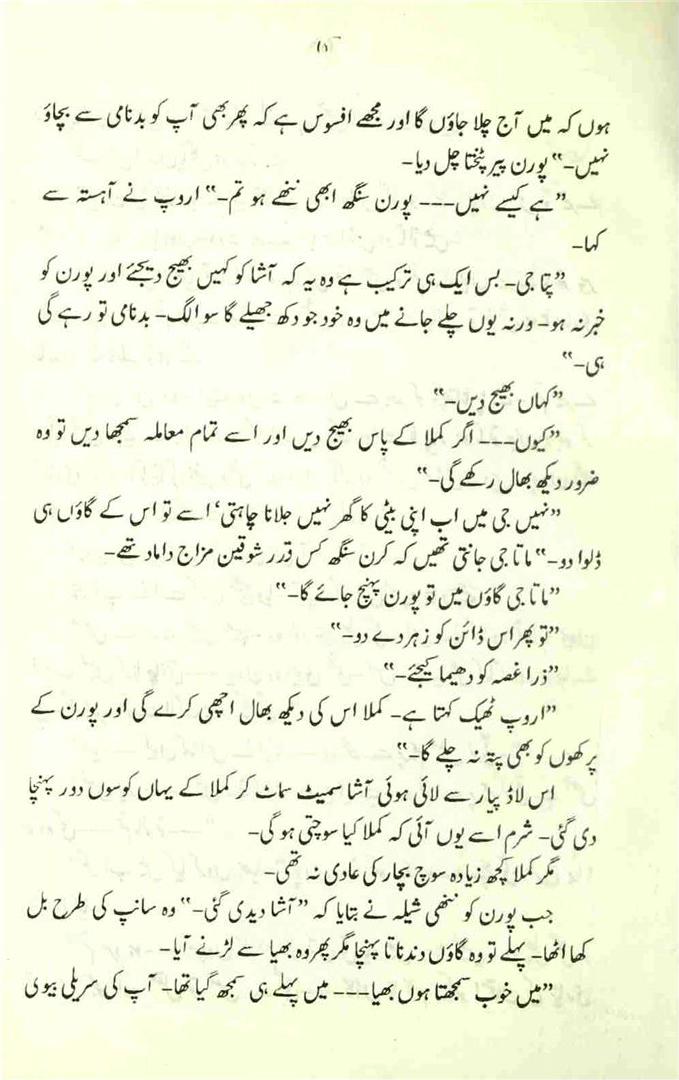 ہوں کہ میں آج چلا جاؤں گا اور مجھے افسوس ہے کہ پھر بھی آپ کو بدنامی سے بچاؤ
نہیں۔“ پورن پیر پٹختا چل دیا۔
”ہے کیسے نہیں۔۔۔ پورن سنگھ ابھی ننھے ہو تم۔“ اروپ نے آہستہ سے
کہا۔
”پتا جی۔ بس ایک ہی ترکیب ہے وہ یہ کہ آشا کو کہیں بھیج دیجئے اور پورن کو
خبر نہ ہو۔ ورنہ یوں چلے جانے میں وہ خود جو دکھ جھیلے گا سو الگ۔ بدنامی تو رہے گی
ہی۔“
”کہاں بھیج دیں۔“
”کیوں۔۔۔ اگر کملا کے پاس بھیج دیں اور اسے تمام معاملہ سمجھا دیں تو وہ
ضرور دیکھ بھال رکھے گی۔“
”نہیں جی میں اب اپنی بیٹی کا گھر نہیں جلانا چاہتی‘ اسے تو اس کے گاؤں ہی
ڈلوا دو۔“ ماتا جی جانتی تھیں کہ کرن سنگھ کس قدر شوقین مزاج داماد تھے۔
”ماتا جی گاؤں میں تو پورن پہنچ جائے گا۔“
”تو پھر اس ڈائن کو زہر دے دو۔“
”ذرا غصہ کو دھیما کیجئے۔“
”اروپ ٹھیک کہتا ہے۔ کملا اس کی دیکھ بھال اچھی کرے گی اور پورن کے
پرکھوں کو بھی پتہ نہ چلے گا۔“
اس لاڈ پیار سے لائی ہوئی آشا سمیٹ سماٹ کر کملا کے یہاں کوسوں دور پہنچا
دی گئی۔ شرم اسے یوں آئی کہ کملا کیا سوچتی ہو گی۔
مگر کملا کچھ زیادہ سوچ بچار کی عادی نہ تھی۔
جب پورن کو ننھی شیلہ نے بتایا کہ ”آشا دیدی گئی۔“ وہ سانپ کی طرح بل
کھا اٹھا۔ پہلے تو وہ گاؤں دندناتا پہنچا مگر پھر وہ بھیا سے لڑنے آیا۔
”میں خوب سمجھتا ہوں بھیا۔۔۔ میں پہلے ہی سمجھ گیا تھا۔ آپ کی سریلی بیوی